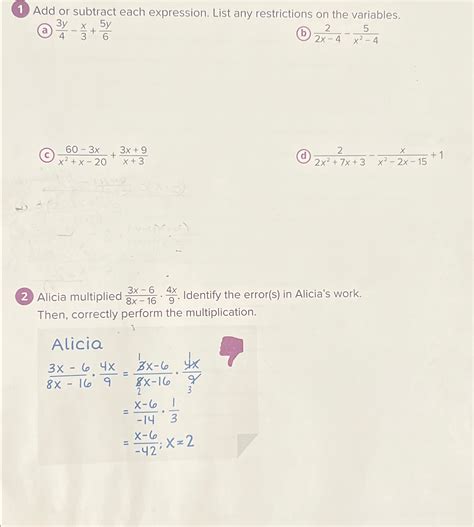 1 Add or subtract each expression. List any restrictions on the variables.
a 3y/4 - x/3 + 5y/6
b 2/(2x - 4) - 5/(x² - 4)
c (60 - 3x)/(x² + x - 20) + (3x + 9)/(x + 3)
d 2/(2x² + 7x + 3) - x/(x² - 2x - 15) + 1
2 Alicia multiplied (3x - 6)/(8x - 16) · 4x/9. Identify the error(s) in Alicia's work.
Then, correctly perform the multiplication.
Alicia
(3x - 6)/(8x - 16) · 4x/9 = (3x - 6)/(8x - 16) · 4x/9
1 2 1 3
= (x - 6)/-14 · 1/3
= (x - 6)/-42; x = 2